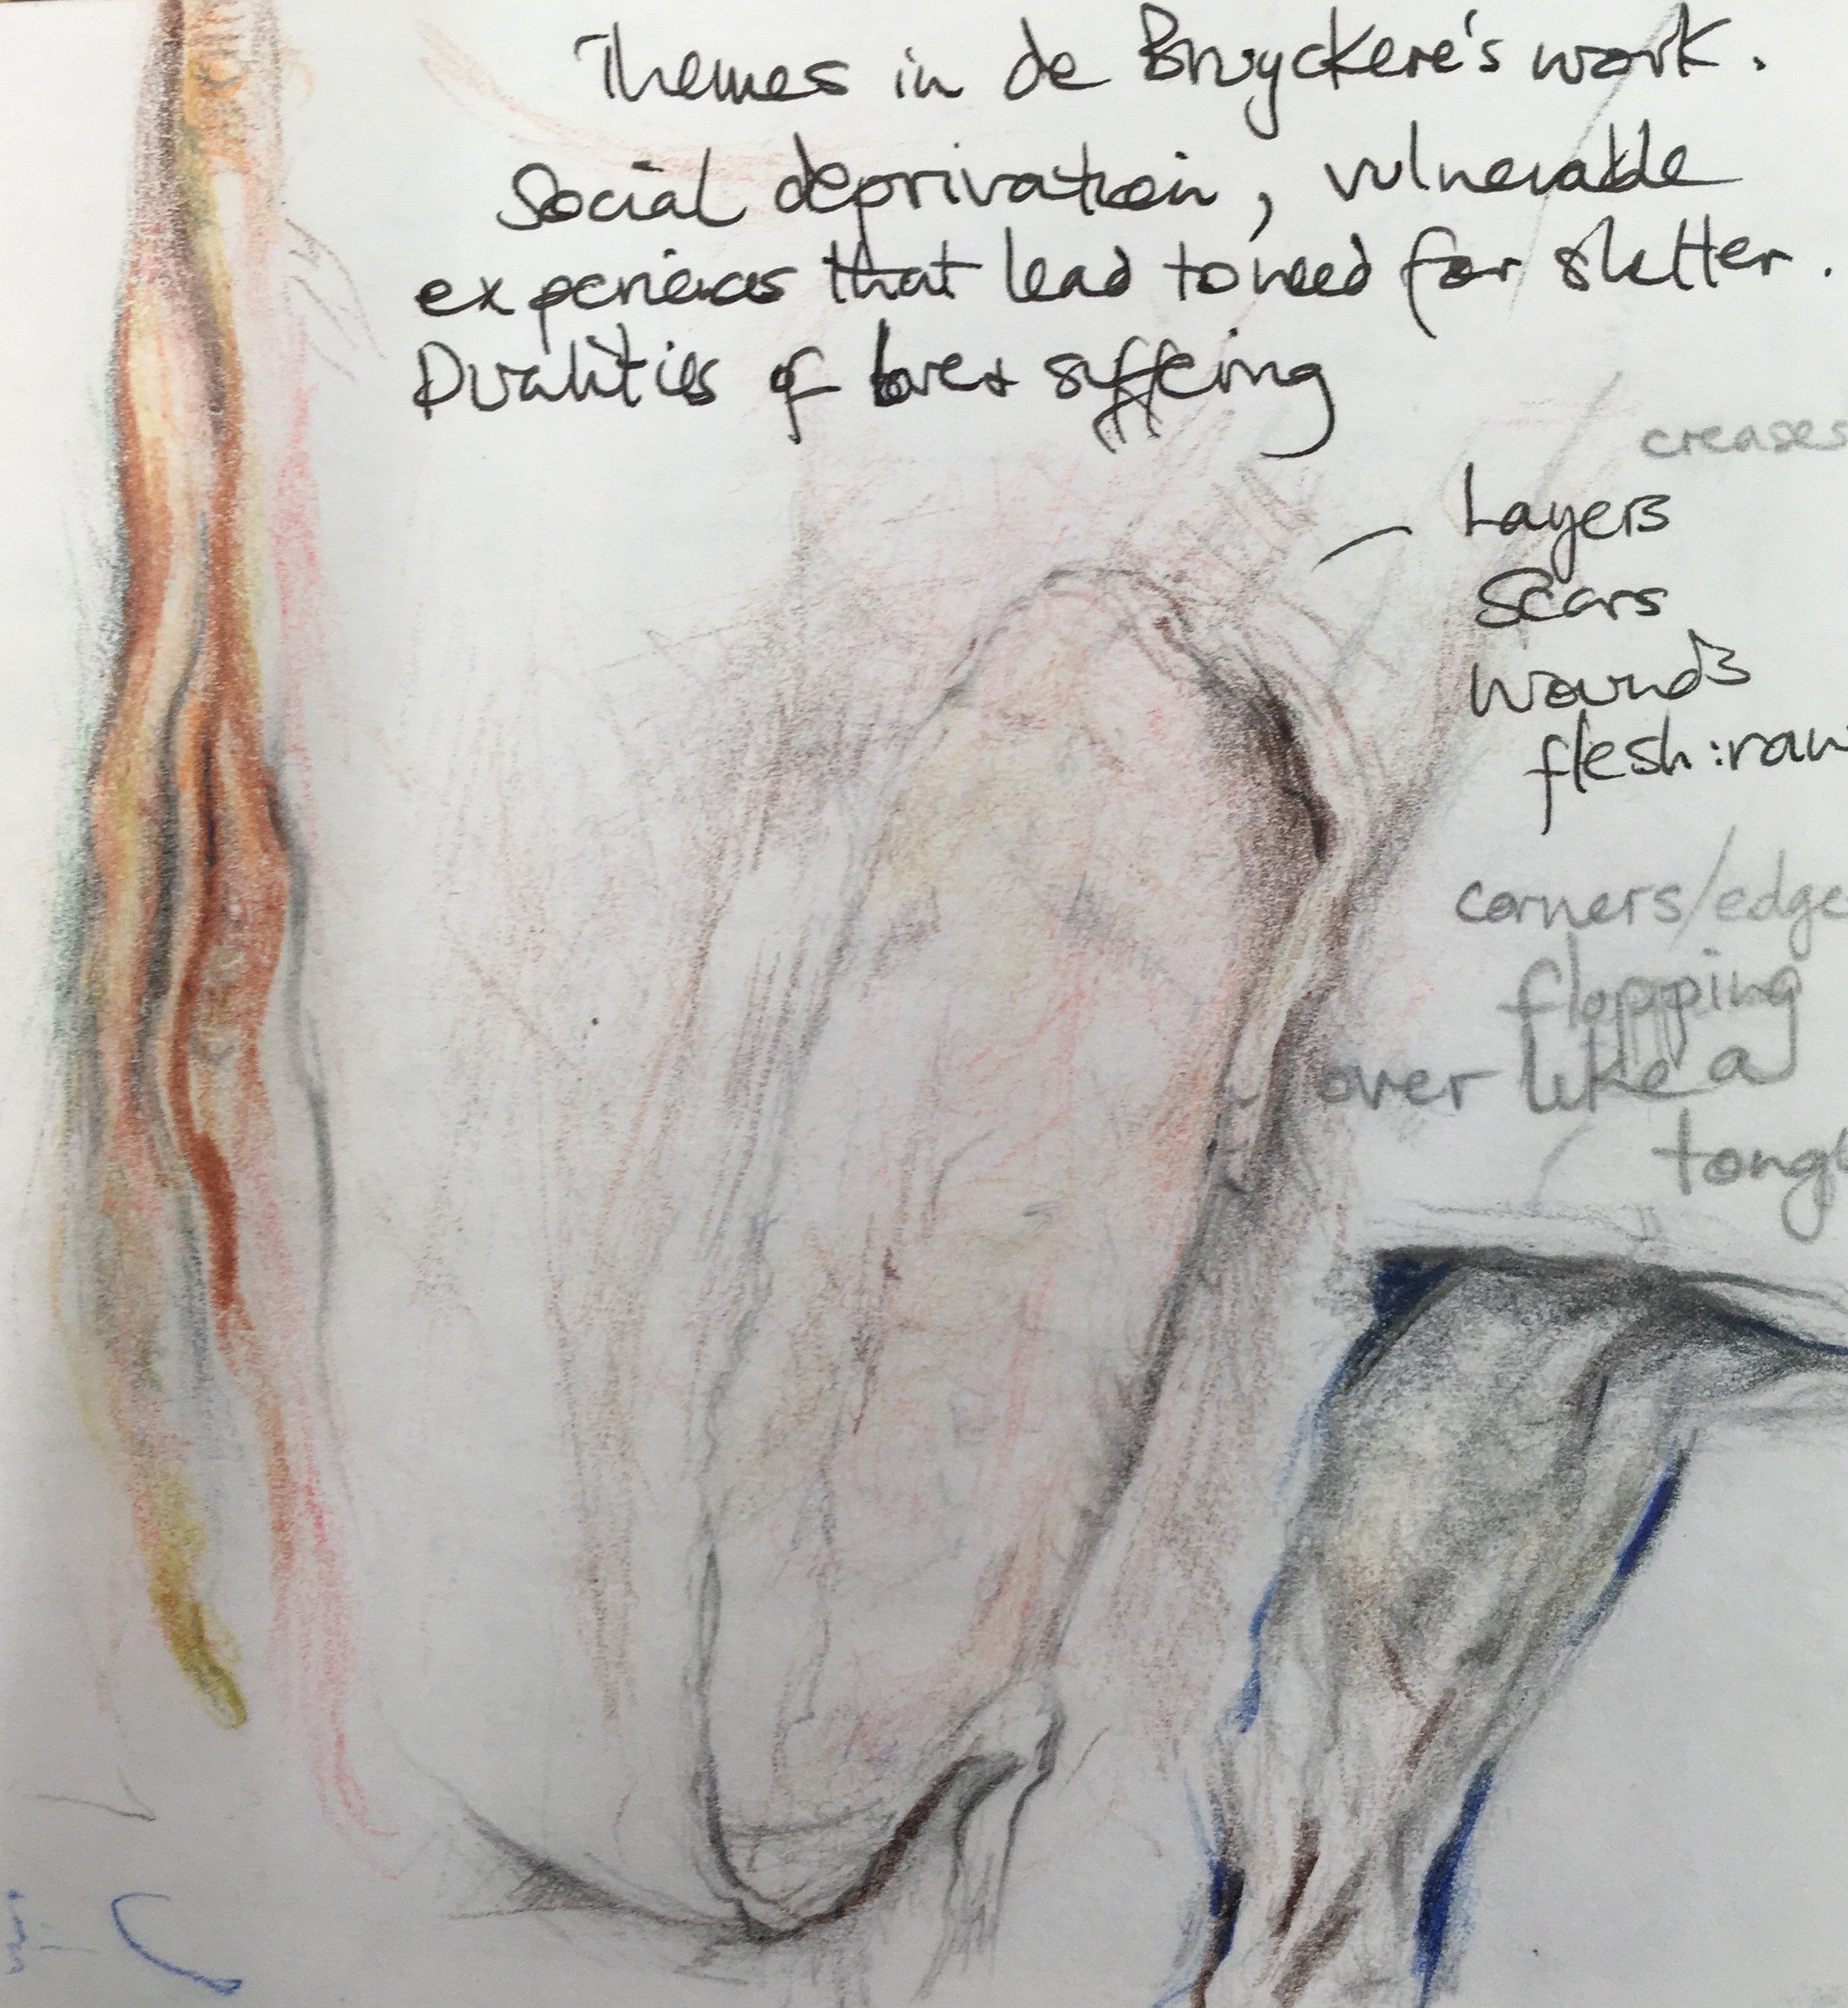 Themes in de Bruyckere's work.
Social deprivation, vulnerable
experiences that lead to need for sheltter.
Dualities of love + suffeing
creases
Layers
Scars
Wounds
flesh: raw
corners/edge
flopping
over like a
tongu